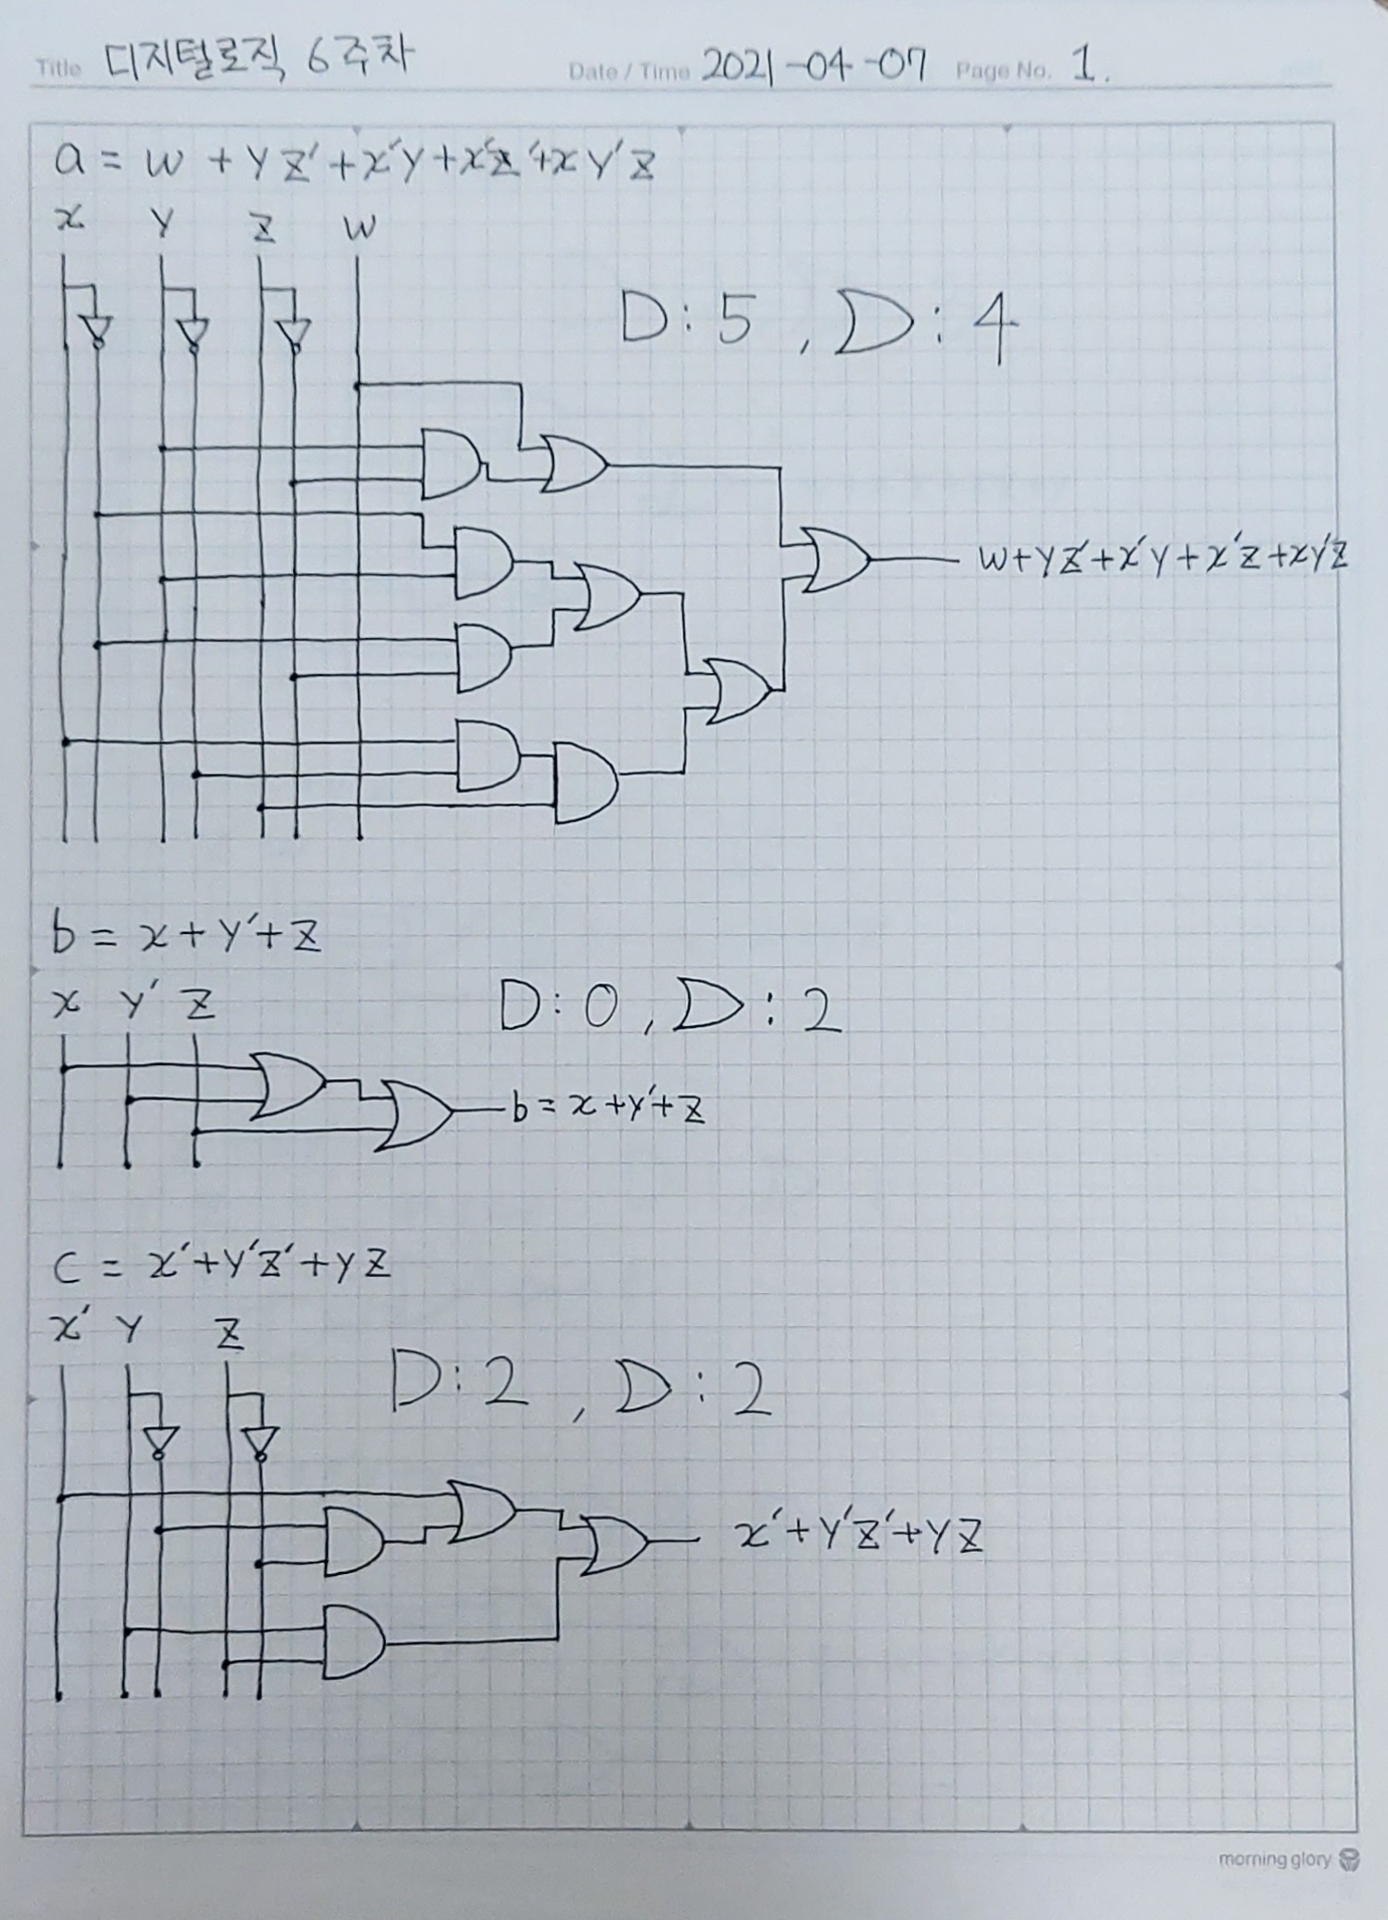 Title 디지털로직 6주차 Date / Time 2021-04-07 Page No. 1.
a = w + yz' + x'y + x'z' + xy'z
x y z w
D : 5 , D : 4
w + yz' + x'y + x'z + xy'z
b = x + y' + z
x y' z
D : 0 , D : 2
b = x + y' + z
c = x' + y'z' + yz
x' y z
D : 2 , D : 2
x' + y'z' + yz
morning glory